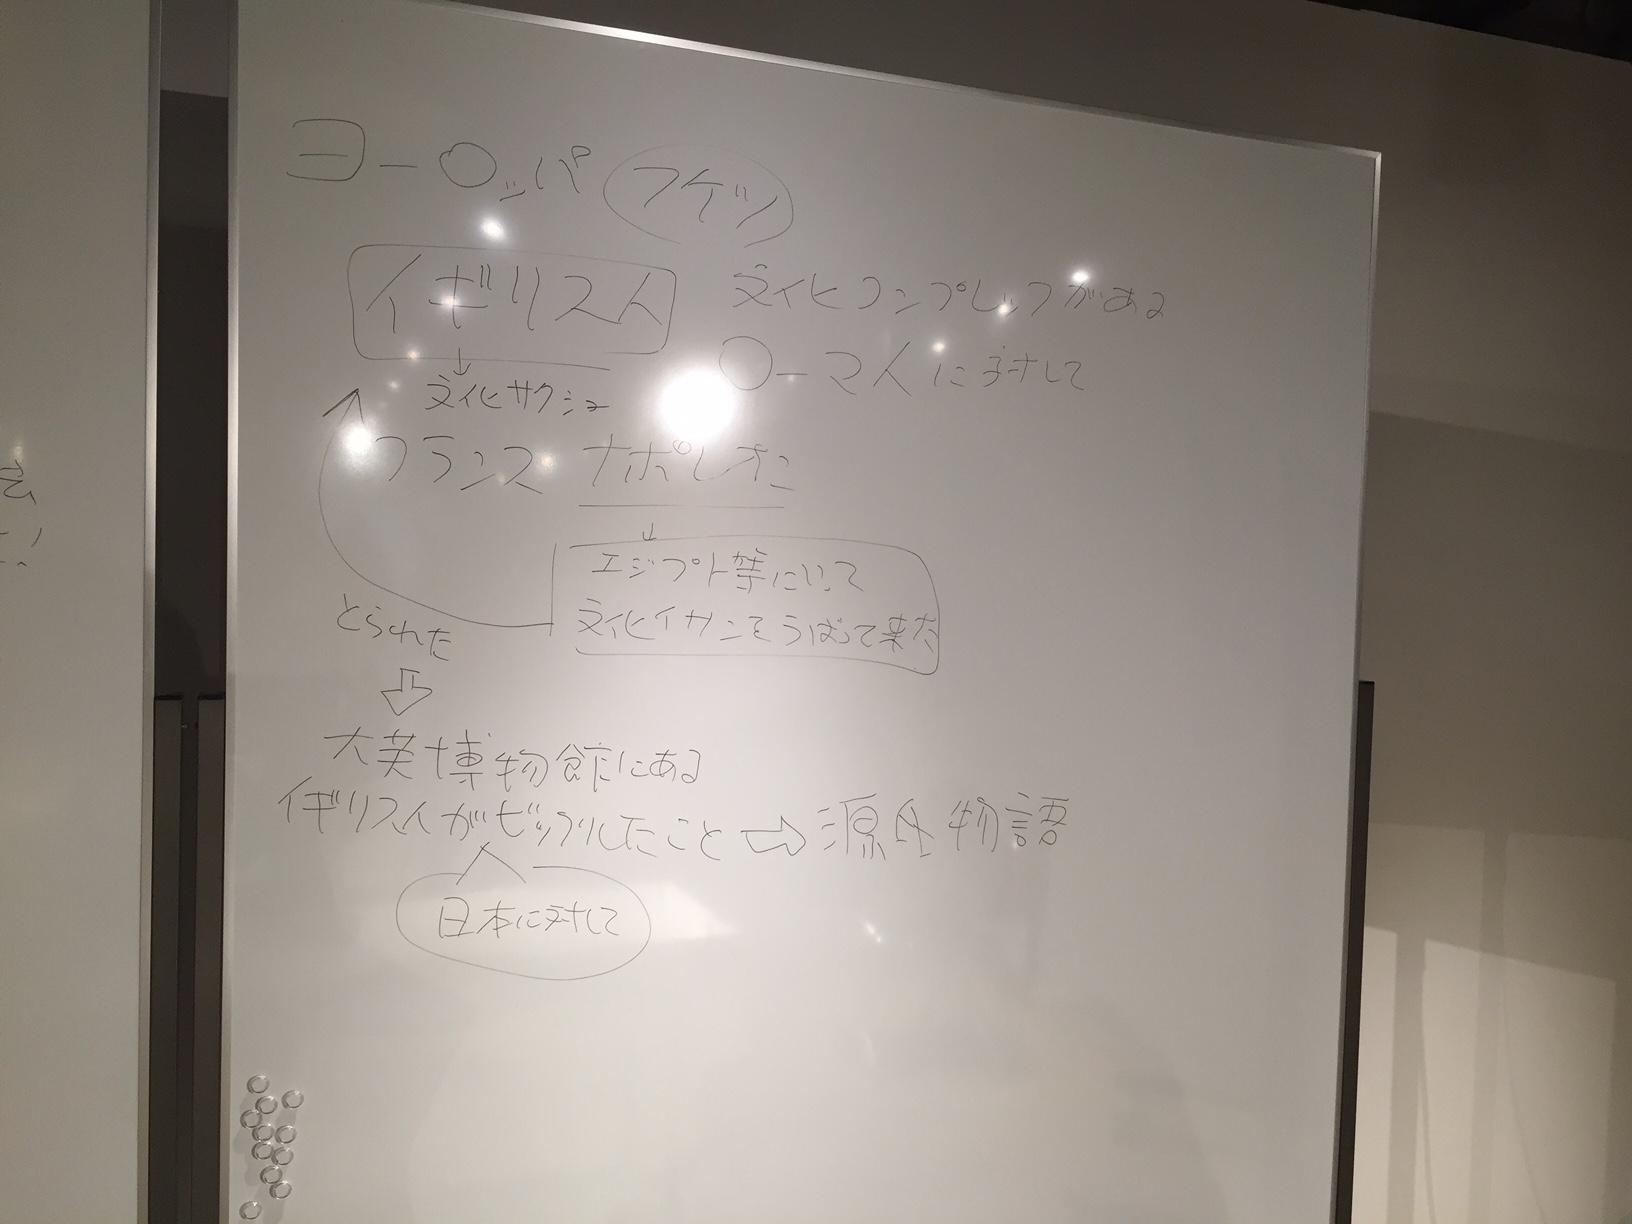 ヨーロッパ フケツ
イギリス人 文化コンプレックがある
ローマ人に対して
↓
文化サクシュ
フランス ナポレオン
↓
エジプト等にいって
文化イサンをうばって来た
とられた
⇩
大英博物館にある
イギリス人がビックリしたこと ⇨ 源氏物語
日本に対して